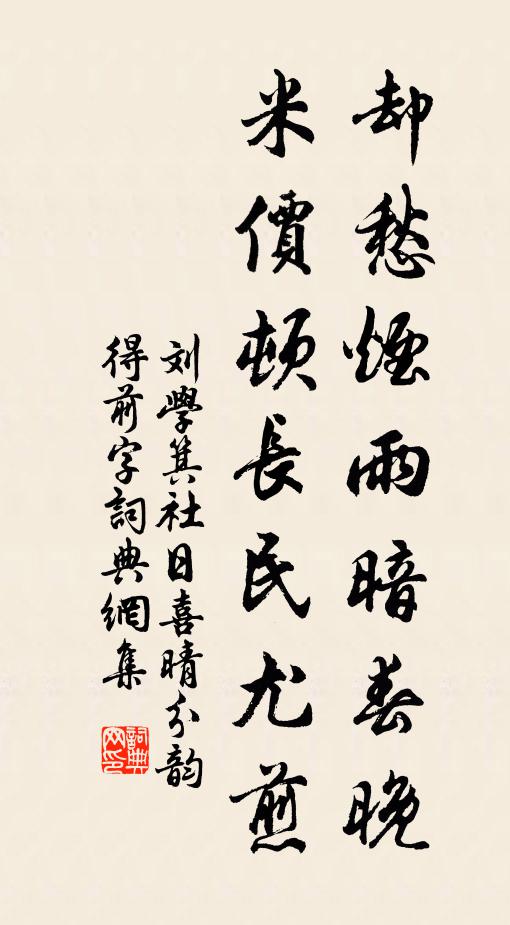 却愁煙雨暗春晚
米價頓長民尤煎
刘學箕社日喜晴分韵
得前字詞典網集
詞典网印